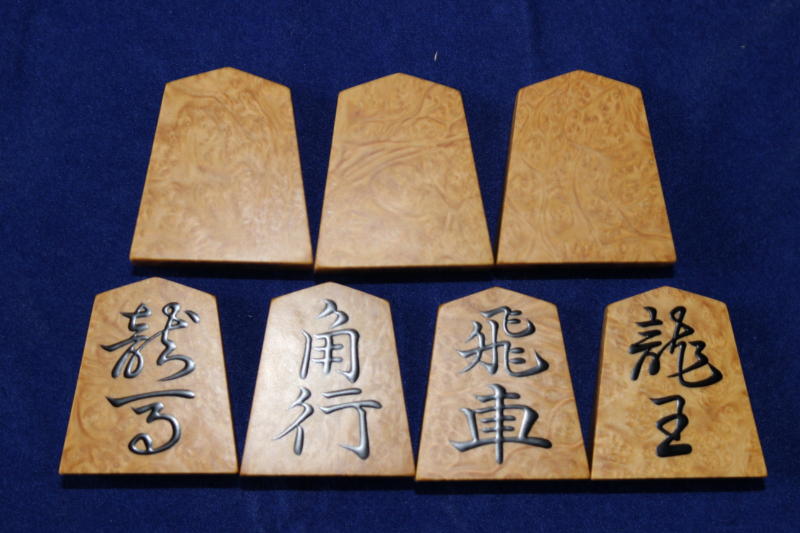 龍馬
角行
飛車
龍王